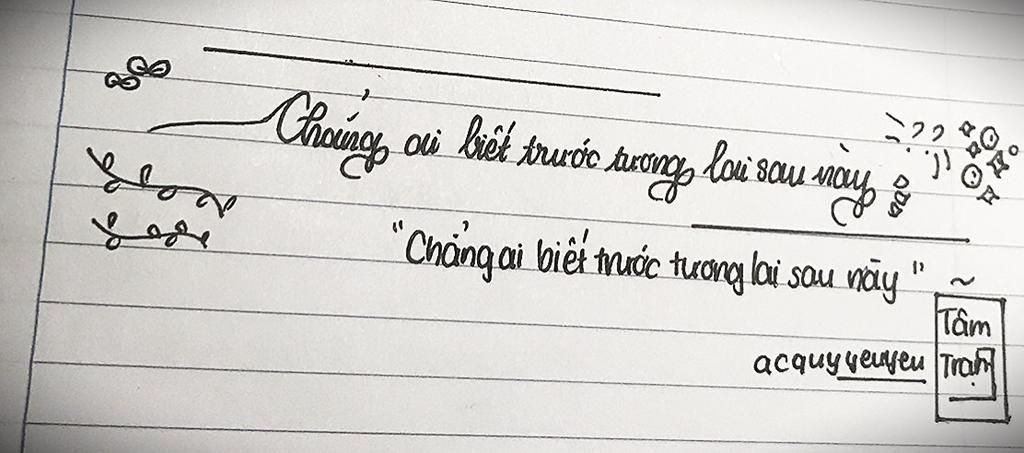 Chẳng ai biết trước tương lai sau này
"Chẳng ai biết trước tương lai sau này" ~
Tâm
Trạng
acquyyeuyeu